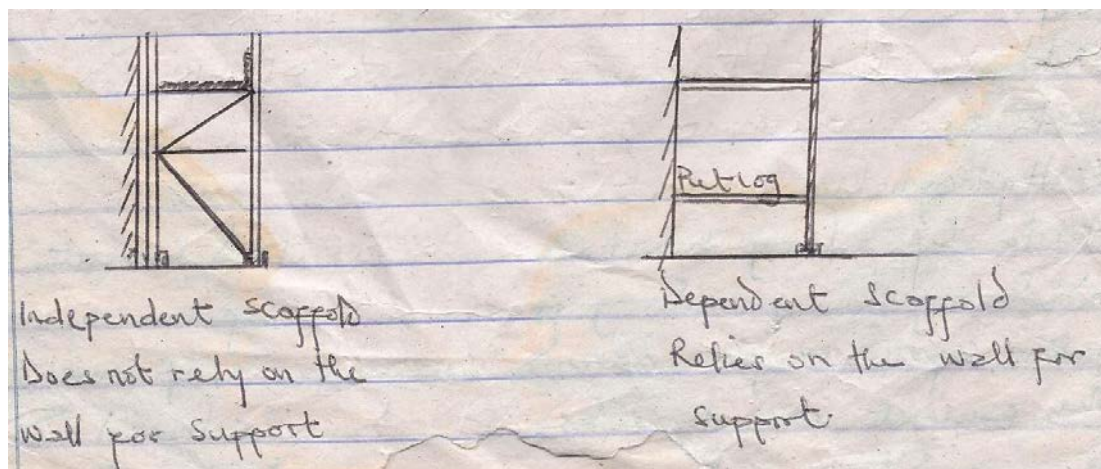 Putlog
Independent Scaffold
Does not rely on the
wall for Support
Dependent Scaffold
Relies on the wall for
support.